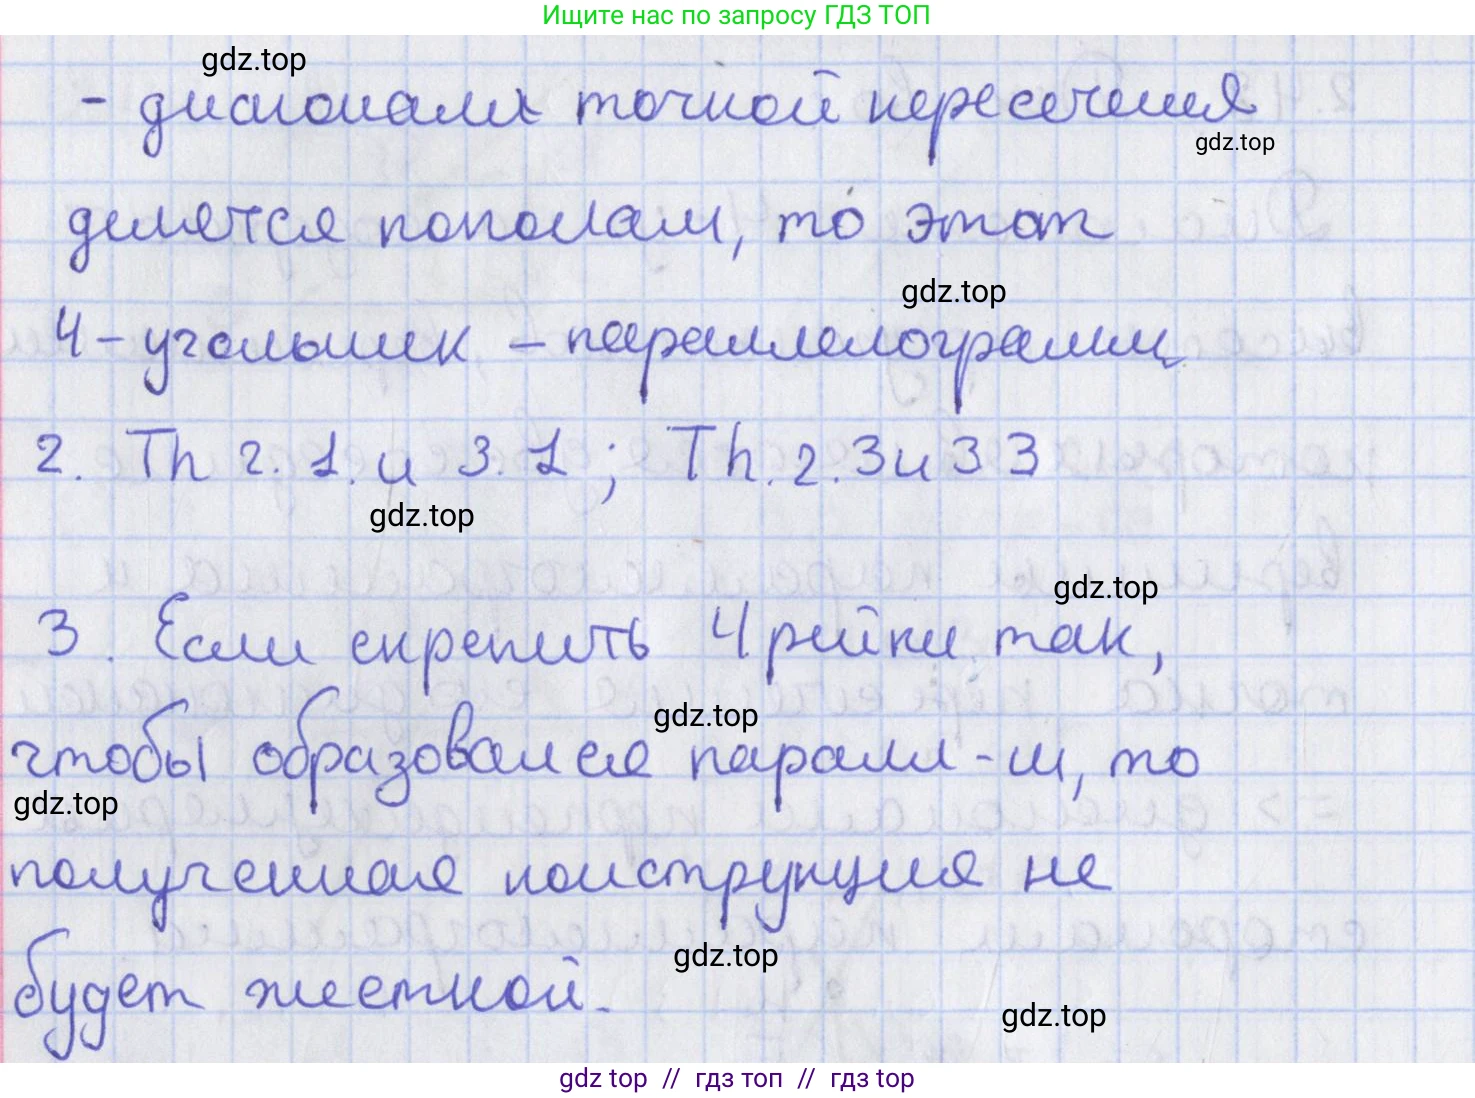 Ищите нас по запросу ГДЗ ТОП
gdz.top
- диагонали точкой пересечения
gdz.top
делятся пополам, то этот
gdz.top
4-угольник - параллелограмм
2. Th 2.1. и 3.1; Th. 2.3 и 3 3
gdz.top
gdz.top
3. Если скрепить 4 рейки так,
gdz.top
чтобы образовался паралл-м, то
gdz.top
полученная конструкция не
gdz.top
будет жесткой.
gdz.top
gdz top // гдз топ // гдз top